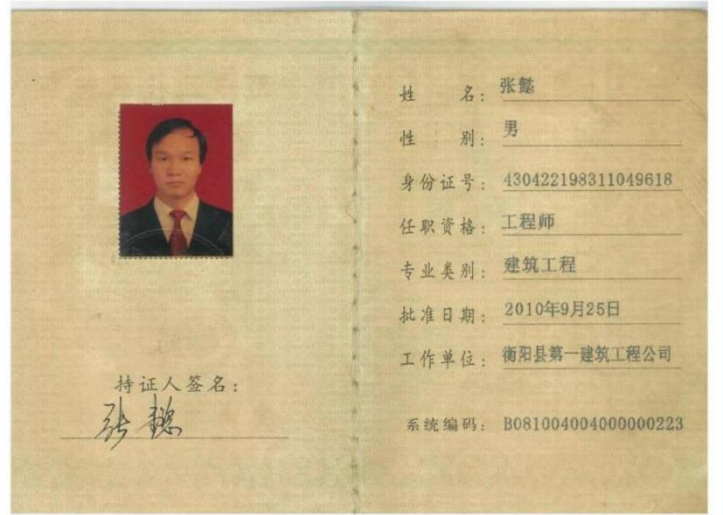 持证人签名：
张懿
姓 名：张懿
性 别：男
身份证号：430422198311049618
任职资格：工程师
专业类别：建筑工程
批准日期：2010年9月25日
工作单位：衡阳县第一建筑工程公司
系统编码：B081004004000000223